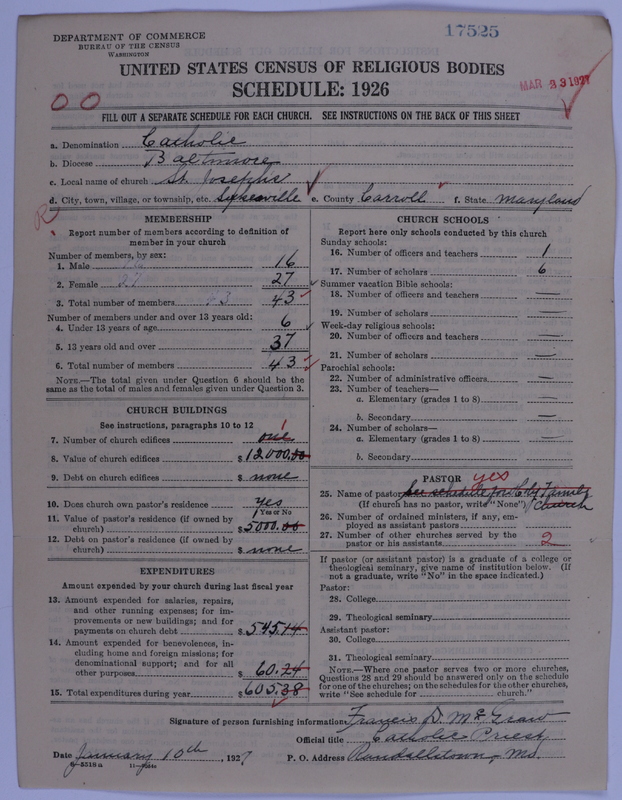 17525
DEPARTMENT OF COMMERCE
BUREAU OF THE CENSUS
WASHINGTON
UNITED STATES CENSUS OF RELIGIOUS BODIES
SCHEDULE: 1926
MAR 23 1927
00
FILL OUT A SEPARATE SCHEDULE FOR EACH CHURCH. SEE INSTRUCTIONS ON THE BACK OF THIS SHEET
a. Denomination Catholic
b. Diocese Baltimore
c. Local name of church St. Josephs
d. City, town, village, or township, etc. Sykesville e. County Carroll f. State Maryland
R
MEMBERSHIP
Report number of members according to definition of
member in your church
Number of members, by sex:
1. Male 16
2. Female 27 27
3. Total number of members 43 43
Number of members under and over 13 years old:
4. Under 13 years of age 6
5. 13 years old and over 37
6. Total number of members 43
NOTE.—The total given under Question 6 should be the
same as the total of males and females given under Question 3.
CHURCH BUILDINGS
See instructions, paragraphs 10 to 12
7. Number of church edifices one 1
8. Value of church edifices $ 12000.00
9. Debt on church edifices $ none
10. Does church own pastor's residence yes
Yes or No
11. Value of pastor's residence (if owned by
church) $ 5000.00
12. Debt on pastor's residence (if owned by
church) $ none
EXPENDITURES
Amount expended by your church during last fiscal year
13. Amount expended for salaries, repairs,
and other running expenses; for im-
provements or new buildings; and for
payments on church debt $ 545.14
14. Amount expended for benevolences, in-
cluding home and foreign missions; for
denominational support; and for all
other purposes $ 60.24
15. Total expenditures during year $ 605.38
CHURCH SCHOOLS
Report here only schools conducted by this church
Sunday schools:
16. Number of officers and teachers 1
17. Number of scholars 6
Summer vacation Bible schools:
18. Number of officers and teachers —
19. Number of scholars —
Week-day religious schools:
20. Number of officers and teachers —
21. Number of scholars —
Parochial schools:
22. Number of administrative officers —
23. Number of teachers—
a. Elementary (grades 1 to 8) —
b. Secondary —
24. Number of scholars—
a. Elementary (grades 1 to 8) —
b. Secondary —
PASTOR yes
25. Name of pastor See schedule for Holy Family
(If church has no pastor, write "None") Church
26. Number of ordained ministers, if any, em-
ployed as assistant pastors
27. Number of other churches served by the
pastor or his assistants 2
If pastor (or assistant pastor) is a graduate of a college or
theological seminary, give name of institution below. (If
not a graduate, write "No" in the space indicated.)
Pastor:
28. College
29. Theological seminary
Assistant pastor:
30. College
31. Theological seminary
NOTE.—Where one pastor serves two or more churches,
Questions 28 and 29 should be answered only on the schedule
for one of the churches; on the schedules for the other churches,
write "See schedule for church."
Signature of person furnishing information Francis D. McGraw
Official title Catholic Priest
Date January 10th, 1927 P. O. Address Randallstown, Md.
8—5518a